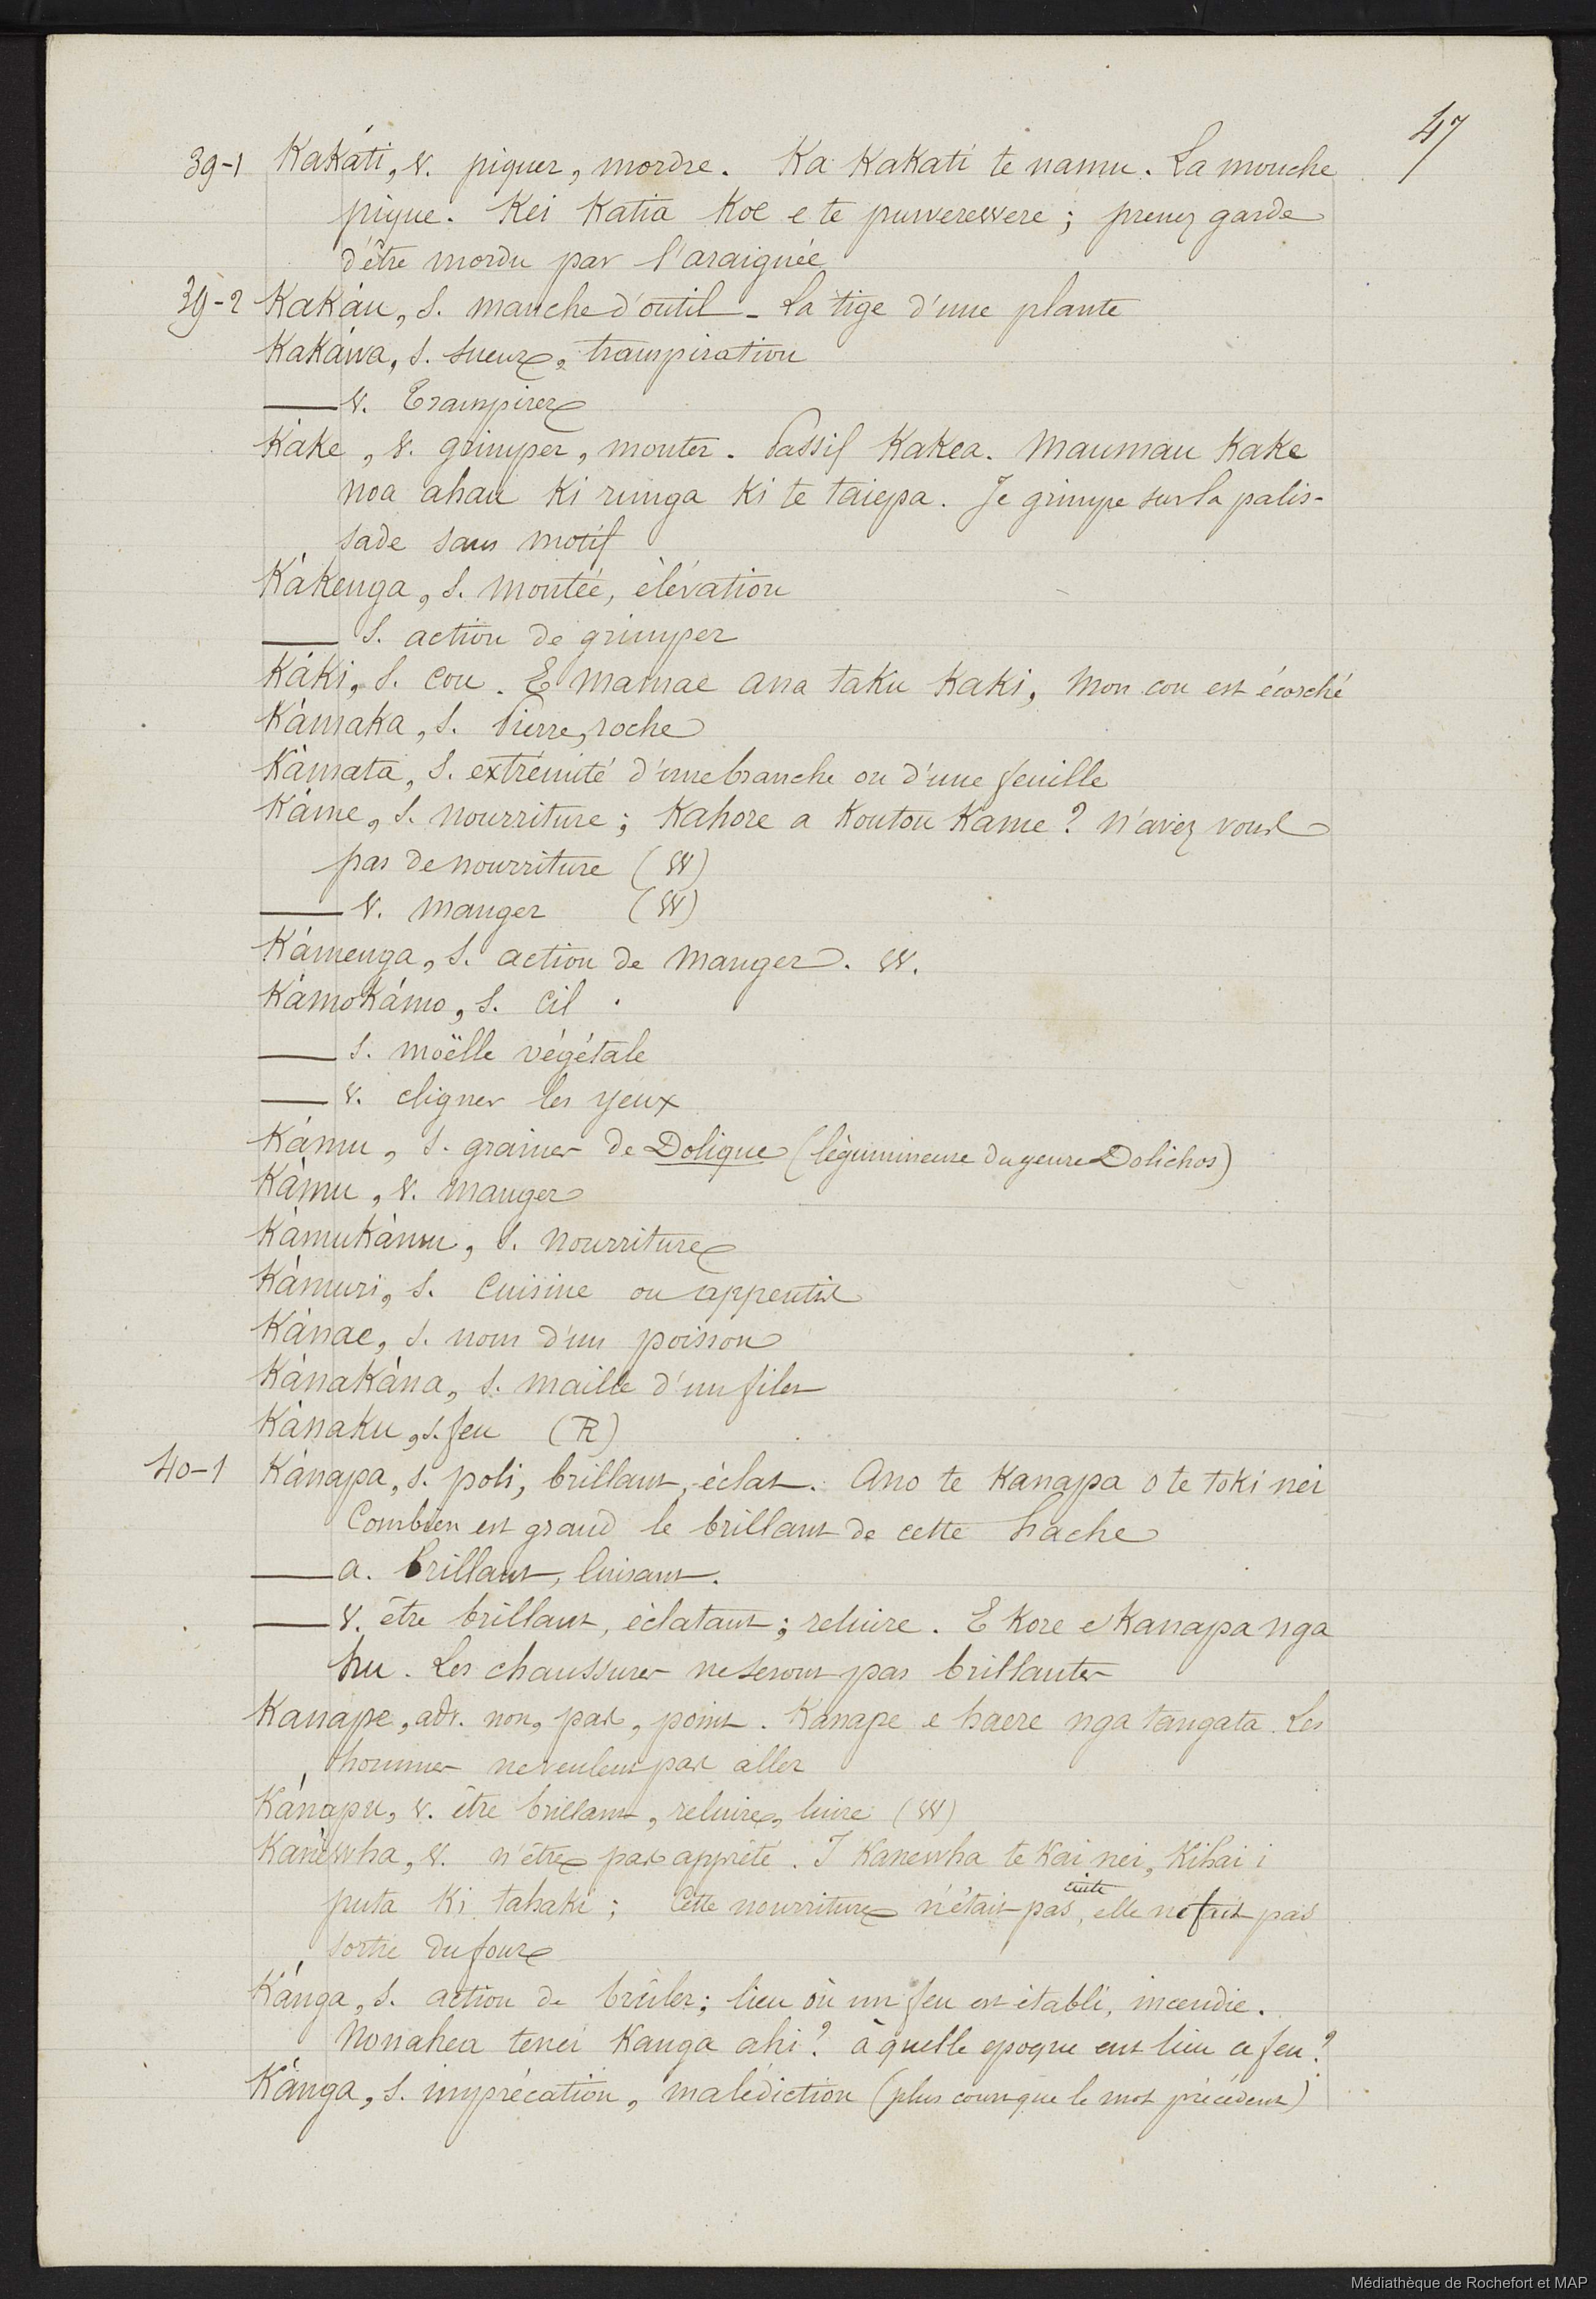 47
39-1 Kakáti, v. piquer, mordre. Ka Kakati te namu. La mouche
pique. Kei Katia Koe e te puwerewere ; prenez garde
d'être mordu par l'araignée
39-2 Kakáu, s. manche d'outil - La tige d'une plante
Kakáwa, s. sueur, transpiration
— v. Transpirer
Káke, v. grimper, monter. Passif Kakea. Maumau Kake
noa ahau Ki runga Ki te taiepa. Je grimpe sur la palis-
sade sans motif
Kákenga, s. montée, élévation
— s. action de grimper
Káki, s. cou. E mamae ana taku Kaki, Mon cou est écorché
Kàmaka, s. Pierre, roche
Kàmata, s. extrémité d'une branche ou d'une feuille
Káme, s. nourriture ; Kahore a Koutou Kame ? n'avez vous
pas de nourriture (W)
— v. manger (W)
Kámenga, s. action de manger. W.
Kàmokámo, s. Cil .
— s. moëlle végétale
— v. cligner les yeux
Kàmu, s. graines de Dolique (légumineuse du genre Dolichos)
Kàmu, v. manger
Kàmukàmu, s. nourriture
Kàmuri, s. Cuisine ou appentis
Kànae, s. nom d'un poisson
Kànakàna, s. maille d'un filet
Kànaku, s. feu (R)
40-1 Kànapa, s. poli, brillant, éclat. Ano te Kanapa o te toki nei
Combien est grand le brillant de cette hache
— a. Brillant, luisant.
— v. être brillant, éclatant ; reluire. E Kore e Kanapa nga
hu. Les chaussures ne seront pas brillantes
Kanape, adv. non, pas, point. Kanape e haere nga tangata. Les
hommes ne veulent pas aller
Kánapu, v. être brillant, reluire, luire (W)
Kanèwha, v. n'être pas apprêté. I Kanewha te Kai nei, Kihai i
puta Ki tahaki ; Cette nourriture n'était pas cuite, elle ne fut pas
sortie du four
Kánga, s. action de brûler ; lieu où un feu est établi, incendie.
Nonahea tenei Kanga ahi ? à quelle epoque eut lieu ce feu ?
Kànga, s. imprécation, malédiction (plus court que le mot précédent)
Médiathèque de Rochefort et MAP